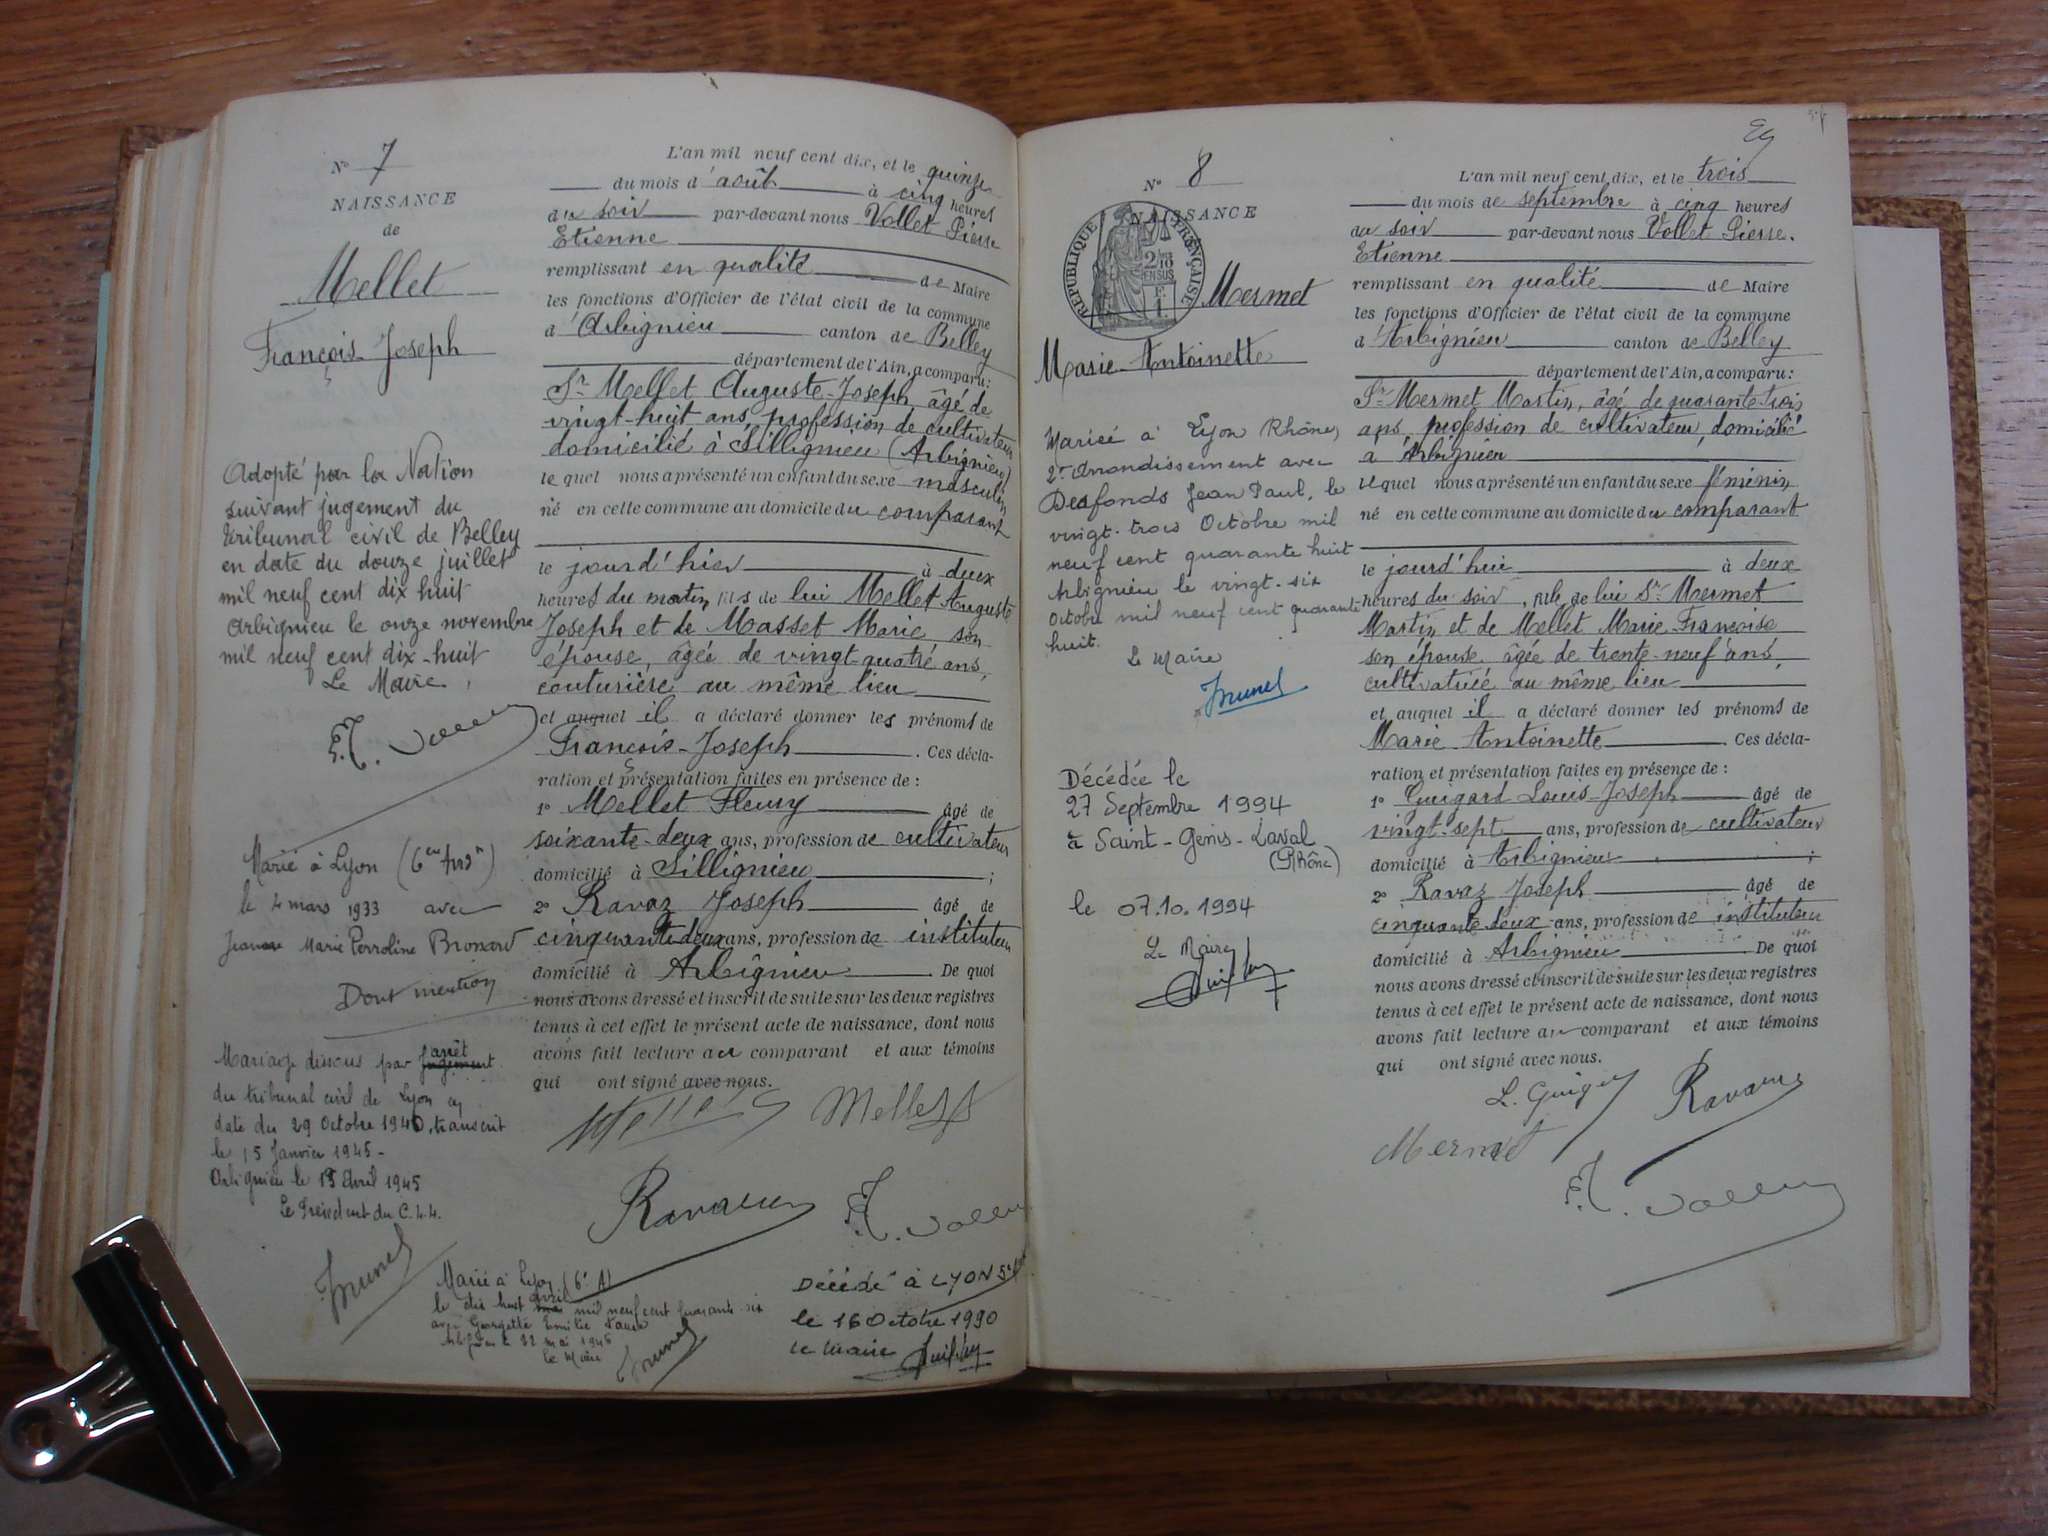 N° 7
NAISSANCE
de
Mellet
François-Joseph
Adopté par la Nation
suivant jugement du
tribunal civil de Belley
en date du douze juillet
mil neuf cent dix huit
Arbignieu le onze novembre
mil neuf cent dix-huit
Le Maire,
Marié à Lyon (6eu Arrt)
le 4 mars 1933 avec
Jeanne Marie Perroline
Dont mention
Mariage dissous par jugement arrêt
du tribunal civil de Lyon en
date du 29 Octobre 1940, transcrit
le 15 Janvier 1945 -
Arbignieu le 15 Avril 1945
Le Président du C.L.L.
Brunel
L'an mil neuf cent dix, et le quinze
du mois d'août à cinq heures
du soir par-devant nous Vollet Pierre
Etienne
remplissant en qualité de Maire
les fonctions d'Officier de l'état civil de la commune
d'Arbignieu canton de Belley
département de l'Ain, a comparu:
Sr Mellet Auguste-Joseph, âgé de
vingt-huit ans, profession de cultivateur
domicilié à Sillignieu (Arbignieu)
lequel nous a présenté un enfant du sexe masculin
né en cette commune au domicile du comparant
le jourd'hier à deux
heures du matin, fils de lui Mellet Auguste
Joseph et de Masset Marie son
épouse, âgée de vingt-quatre ans,
couturière au même lieu
et auquel il a déclaré donner les prénoms de
François-Joseph. Ces décla-
ration et présentation faites en présence de :
1° Mellet Fleury âgé de
soixante-deux ans, profession de cultivateur
domicilié à Sillignieu ;
2° Ravaz Joseph âgé de
cinquante deux ans, profession de instituteur
domicilié à Arbignieu. De quoi
nous avons dressé et inscrit de suite sur les deux registres
tenus à cet effet le présent acte de naissance, dont nous
avons fait lecture au comparant et aux témoins
qui ont signé avec nous.
Mellet Mellet
Marié à Lyon (6e A)
le dix huit mai avril mil neuf cent quarante-six
avec Georgette Emilie
Arbignieu le 22 mai 1946
Le Maire
Brunel
Décédé à LYON 5e
le 16 Octobre 1990
Le Maire
29
N° 8
NAISSANCE
REPUBLIQUE FRANÇAISE
2/10 EN SUS
Mermet
Marie-Antoinette
Mariée à Lyon Rhône,
2e arrondissement avec
Desfonds Jean Paul, le
vingt-trois Octobre mil
neuf cent quarante huit
Arbignieu le vingt-six
Octobre mil neuf cent quarante
huit.
Le Maire
Brunel
Décédée le
27 Septembre 1994
à Saint-Genis-Laval
(Rhône)
le 07.10.1994
Le Maire
L'an mil neuf cent dix, et le trois
du mois de septembre à cinq heures
du soir par-devant nous Vollet Pierre.
Etienne
remplissant en qualité de Maire
les fonctions d'Officier de l'état civil de la commune
d'Arbignieu canton de Belley
département de l'Ain, a comparu:
Sr Mermet Martin, âgé de quarante-trois
ans, profession de cultivateur, domicilié
à Arbignieu
lequel nous a présenté un enfant du sexe féminin
né en cette commune au domicile du comparant
le jourd'hui à deux
heures du soir, fille de lui Sr Mermet
Martin et de Mellet Marie-Françoise
son épouse âgée de trente-neuf ans,
cultivatrice au même lieu
et auquel il a déclaré donner les prénoms de
Marie Antoinette. Ces décla-
ration et présentation faites en présence de :
1° Guigard Louis-Joseph âgé de
vingt-sept ans, profession de cultivateur
domicilié à Arbignieu ;
2° Ravaz Joseph âgé de
cinquante deux ans, profession de instituteur
domicilié à Arbignieu. De quoi
nous avons dressé et inscrit de suite sur les deux registres
tenus à cet effet le présent acte de naissance, dont nous
avons fait lecture au comparant et aux témoins
qui ont signé avec nous.
Mermet